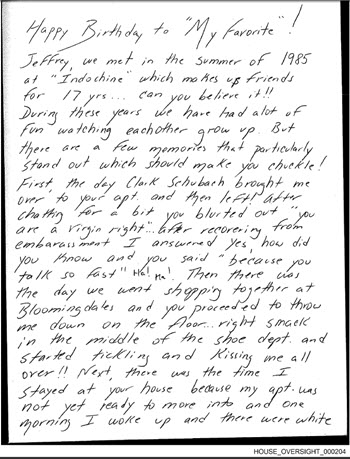 Happy Birthday to "My Favorite"!
Jeffrey, we met in the summer of 1985
at "Indochine" which makes us friends
for 17 yrs... can you believe it!!
During these years we have had alot of
fun watching eachother grow up. But
there are a few memories that particularly
stand out which should make you chuckle!
First, the day Clark Schubach brought me
over to your apt. and then left! after
chatting for a bit you blurted out "you
are a virgin right"..after recovering from
embarassment I answered yes, how did
you know and you said "because you
talk so fast" Ha! Ha! Then there was
the day we went shopping together at
Bloomingdales and you proceeded to throw
me down on the floor...right smack
in the middle of the shoe dept. and
started tickling and kissing me all
over!! Next, there was the time I
stayed at your house because my apt. was
not yet ready to move into and one
morning I woke up and there were white
HOUSE_OVERSIGHT_000204